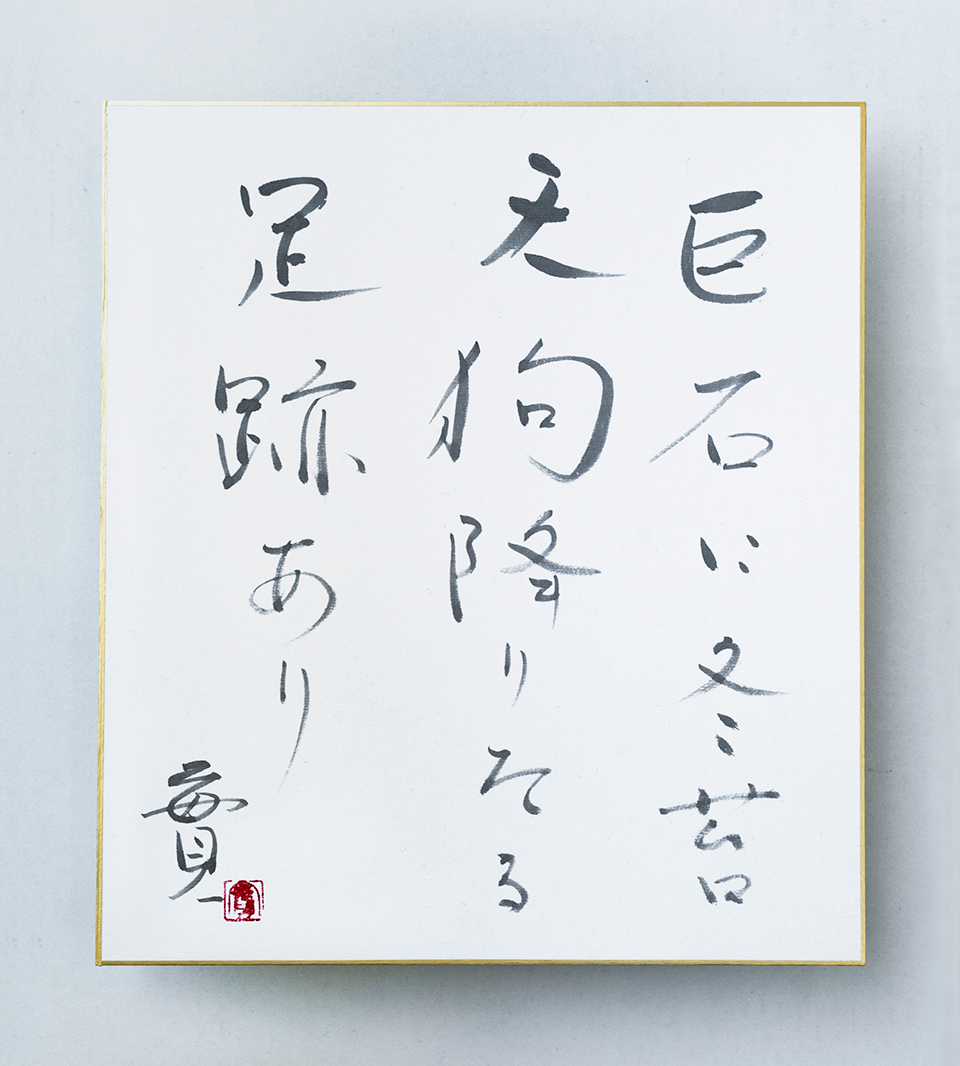 巨石に冬苔
天狗降りたる
足跡あり
實